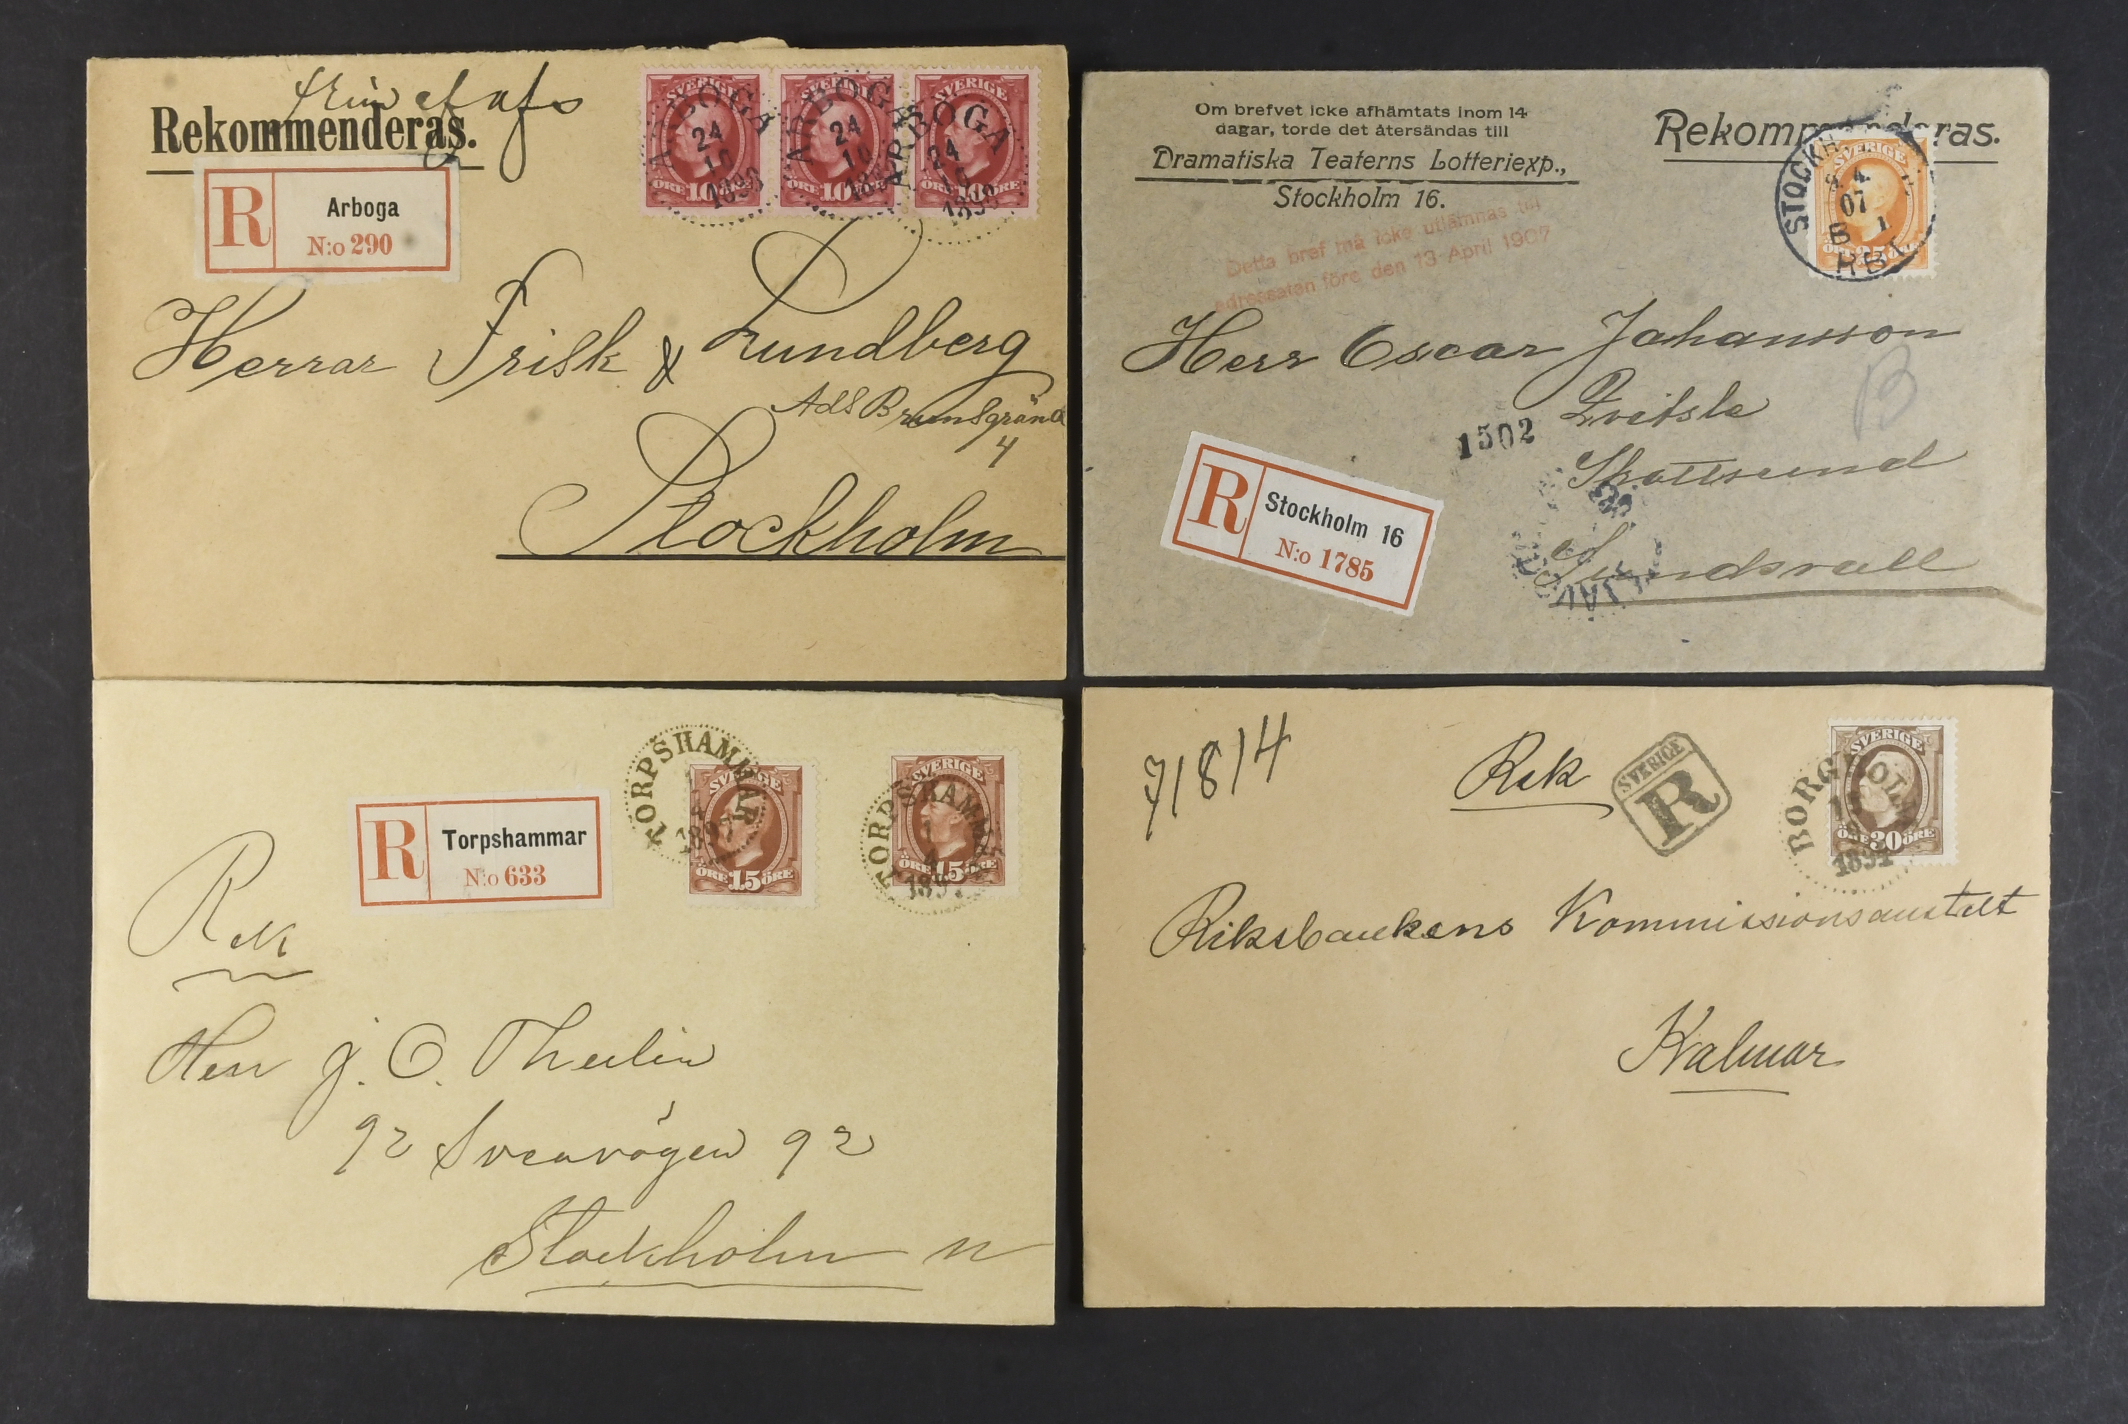 Rekommenderas.
R
Arboga
N:o 290
SVERIGE
SVERIGE
SVERIGE
ÖRE 10 ÖRE
ÖRE 10 ÖRE
ÖRE 10 ÖRE
ARBOGA
24
10
ARBOGA
24
10
ARBOGA
24
10
Herrar Frisk & Lundberg
4
Stockholm
Om brefvet icke afhämtats inom 14
dagar, torde det återsändas till
Dramatiska Teaterns Lotteriexp.,
Stockholm 16.
Rekommenderas.
Detta bref må icke utlämnas till
adressaten före den 13 April 1907
SVERIGE
ÖRE 25 ÖRE
STOCKH
9. 4.
07
Herr Oscar Johansson
B
1502
R
Stockholm 16
N:o 1785
Sundsvall
R
Torpshammar
N:o 633
TORPSHAMMAR
1
4
1897
SVERIGE
ÖRE 15 ÖRE
TORPSHAMMAR
1
4
1897
SVERIGE
ÖRE 15 ÖRE
Rek
Herr J. C. Theelin
92 Sveavägen 92
Stockholm N
71814
Rek
SVERIGE
R
SVERIGE
ÖRE 30 ÖRE
BORGHOLM
Riksbankens Kommissionsanstalt
Kalmar